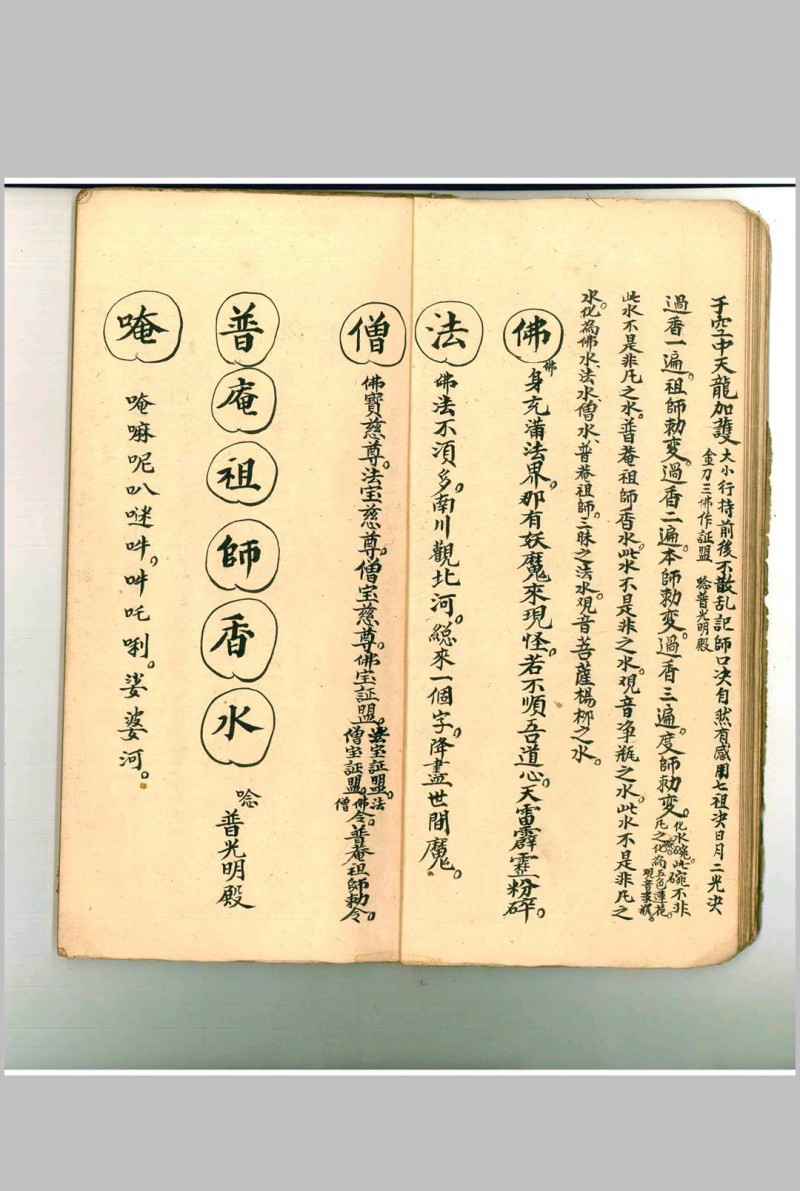 于空中天龍加護大小行持前後不散乱記師口决自然有感用七祖决日月二光决
金刀三佛作証盟 唸普光明殿
過香一遍。祖師勅变。過香二遍。本師勅变。過香三遍。度師勅变。化水碗。此碗不非
凡之碗。化為五色蓮花。
此水不是非凡之水。普菴祖師香水。此水不是非之水。观音净瓶之水。此水不是非凡之
水。化為佛水、法水、僧水、普菴祖師。三昧之法水。观音菩薩楊柳之水。
佛 佛身充滿法界。那有妖魔來現怪。若不順吾道心。天雷霹靂粉碎。
法 佛法不湏多。南川觀北河。総來一個字。降盡世間魔。
僧 佛寳慈尊。法宝慈尊。僧宝慈尊。佛宝証盟。法宝証盟。法
僧宝証盟。佛令。普菴祖師勅令。
僧
普庵祖師香水 唸普光明殿
唵 唵嘛呢叭㘨吽。吽吒唎。娑婆河。